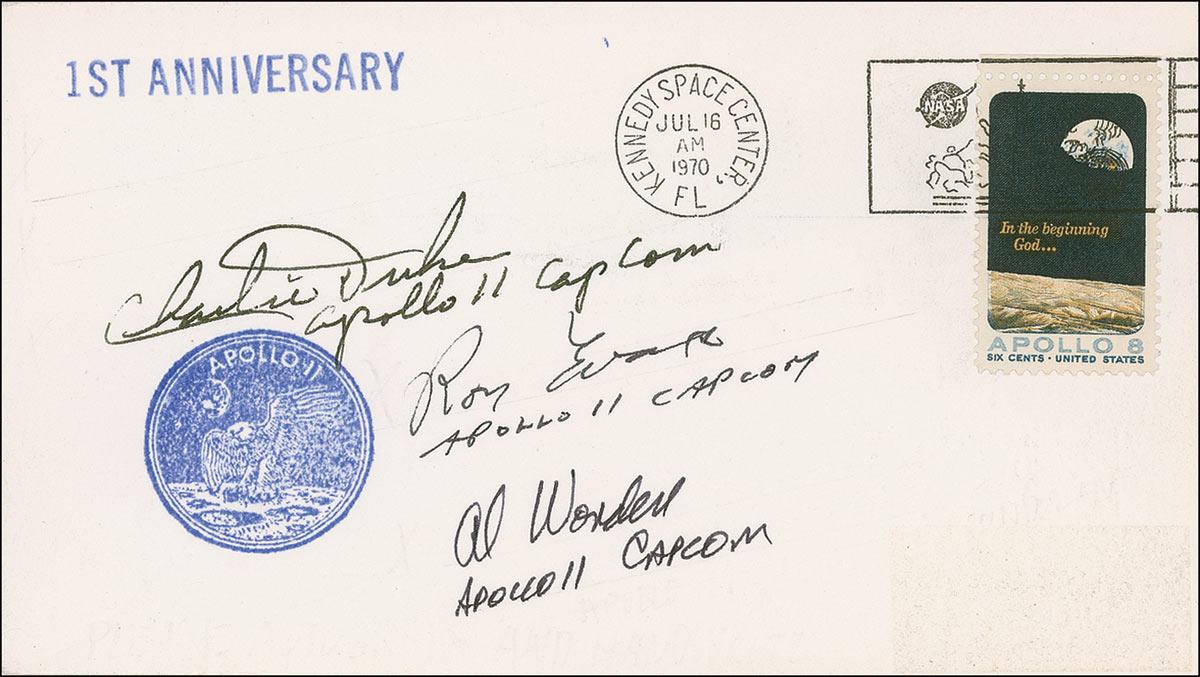 1ST ANNIVERSARY
KENNEDY SPACE CENTER,
JUL 16
AM
1970
FL
NASA
In the beginning
God...
APOLLO 8
SIX CENTS · UNITED STATES
Charlie Duke
apollo 11 capcom
Ron Evans
APOLLO 11 CAPCOM
APOLLO 11
Al Worden
APOLLO 11 CAPCOM